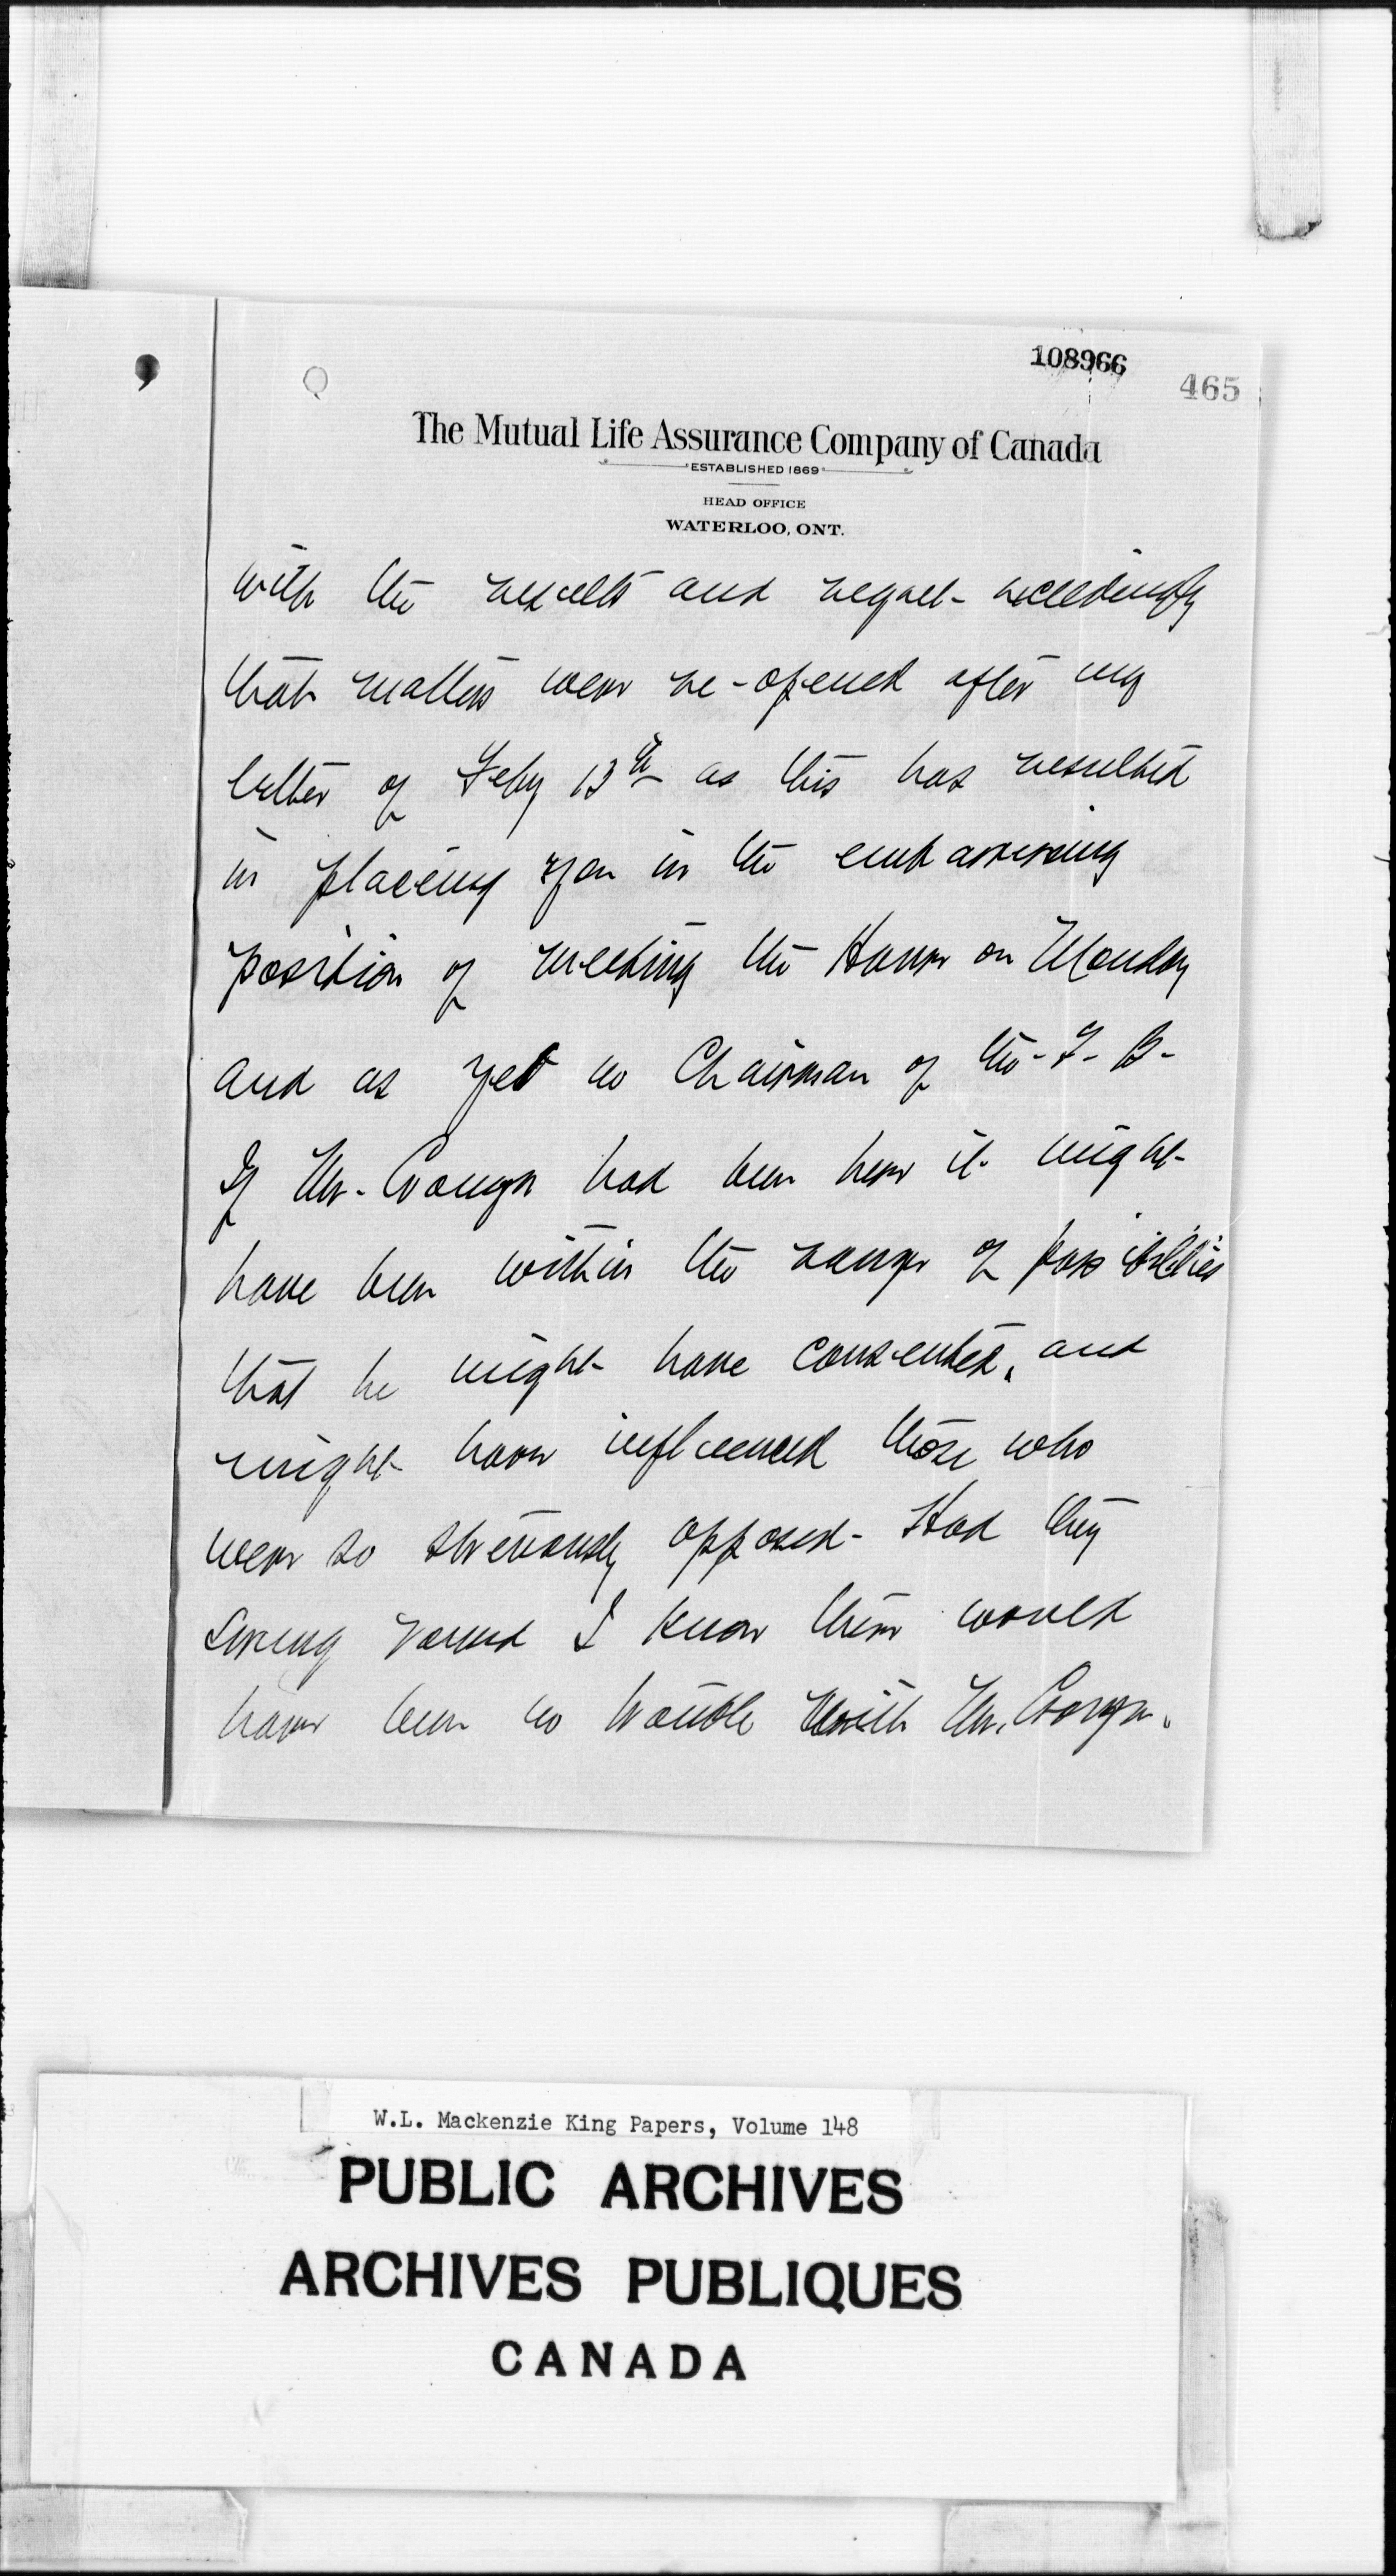 108966
465
The Mutual Life Assurance Company of Canada
ESTABLISHED 1869
HEAD OFFICE
WATERLOO, ONT.
with the result and regret - exceedingly
that matters were re-opened after my
letter of Feby 13th as this has resulted
in placing you in the embarrising
position of meeting the House on Monday
and as yet no Chairman of the - T - B -
If Mr - had been here it might -
have been within the range of possibilities
that he might - have consented, and
might - have influenced those who
were so strenously opposed - Had they
swung round I know there would
have been no trouble with Mr.
W.L. Mackenzie King Papers, Volume 148
PUBLIC ARCHIVES
ARCHIVES PUBLIQUES
CANADA